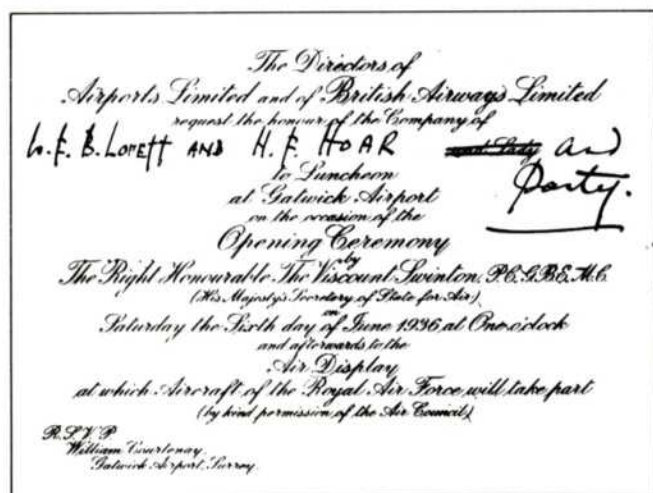 The Directors of
Airports Limited and of British Airways Limited
request the honour of the Company of
AND H. F. HOAR and Lady and
Party.
to Luncheon
at Gatwick Airport
on the occasion of the
Opening Ceremony
by
The Right Honourable The Viscount Swinton, P.C. G.B.E. M.C.
(His Majesty's Secretary of State for Air)
on
Saturday the Sixth day of June 1936, at One o'clock
and afterwards to the
Air Display
at which Aircraft of the Royal Air Force will take part
(by kind permission of the Air Council)
R.S.V.P.
William Courtenay,
Gatwick Airport, Surrey.